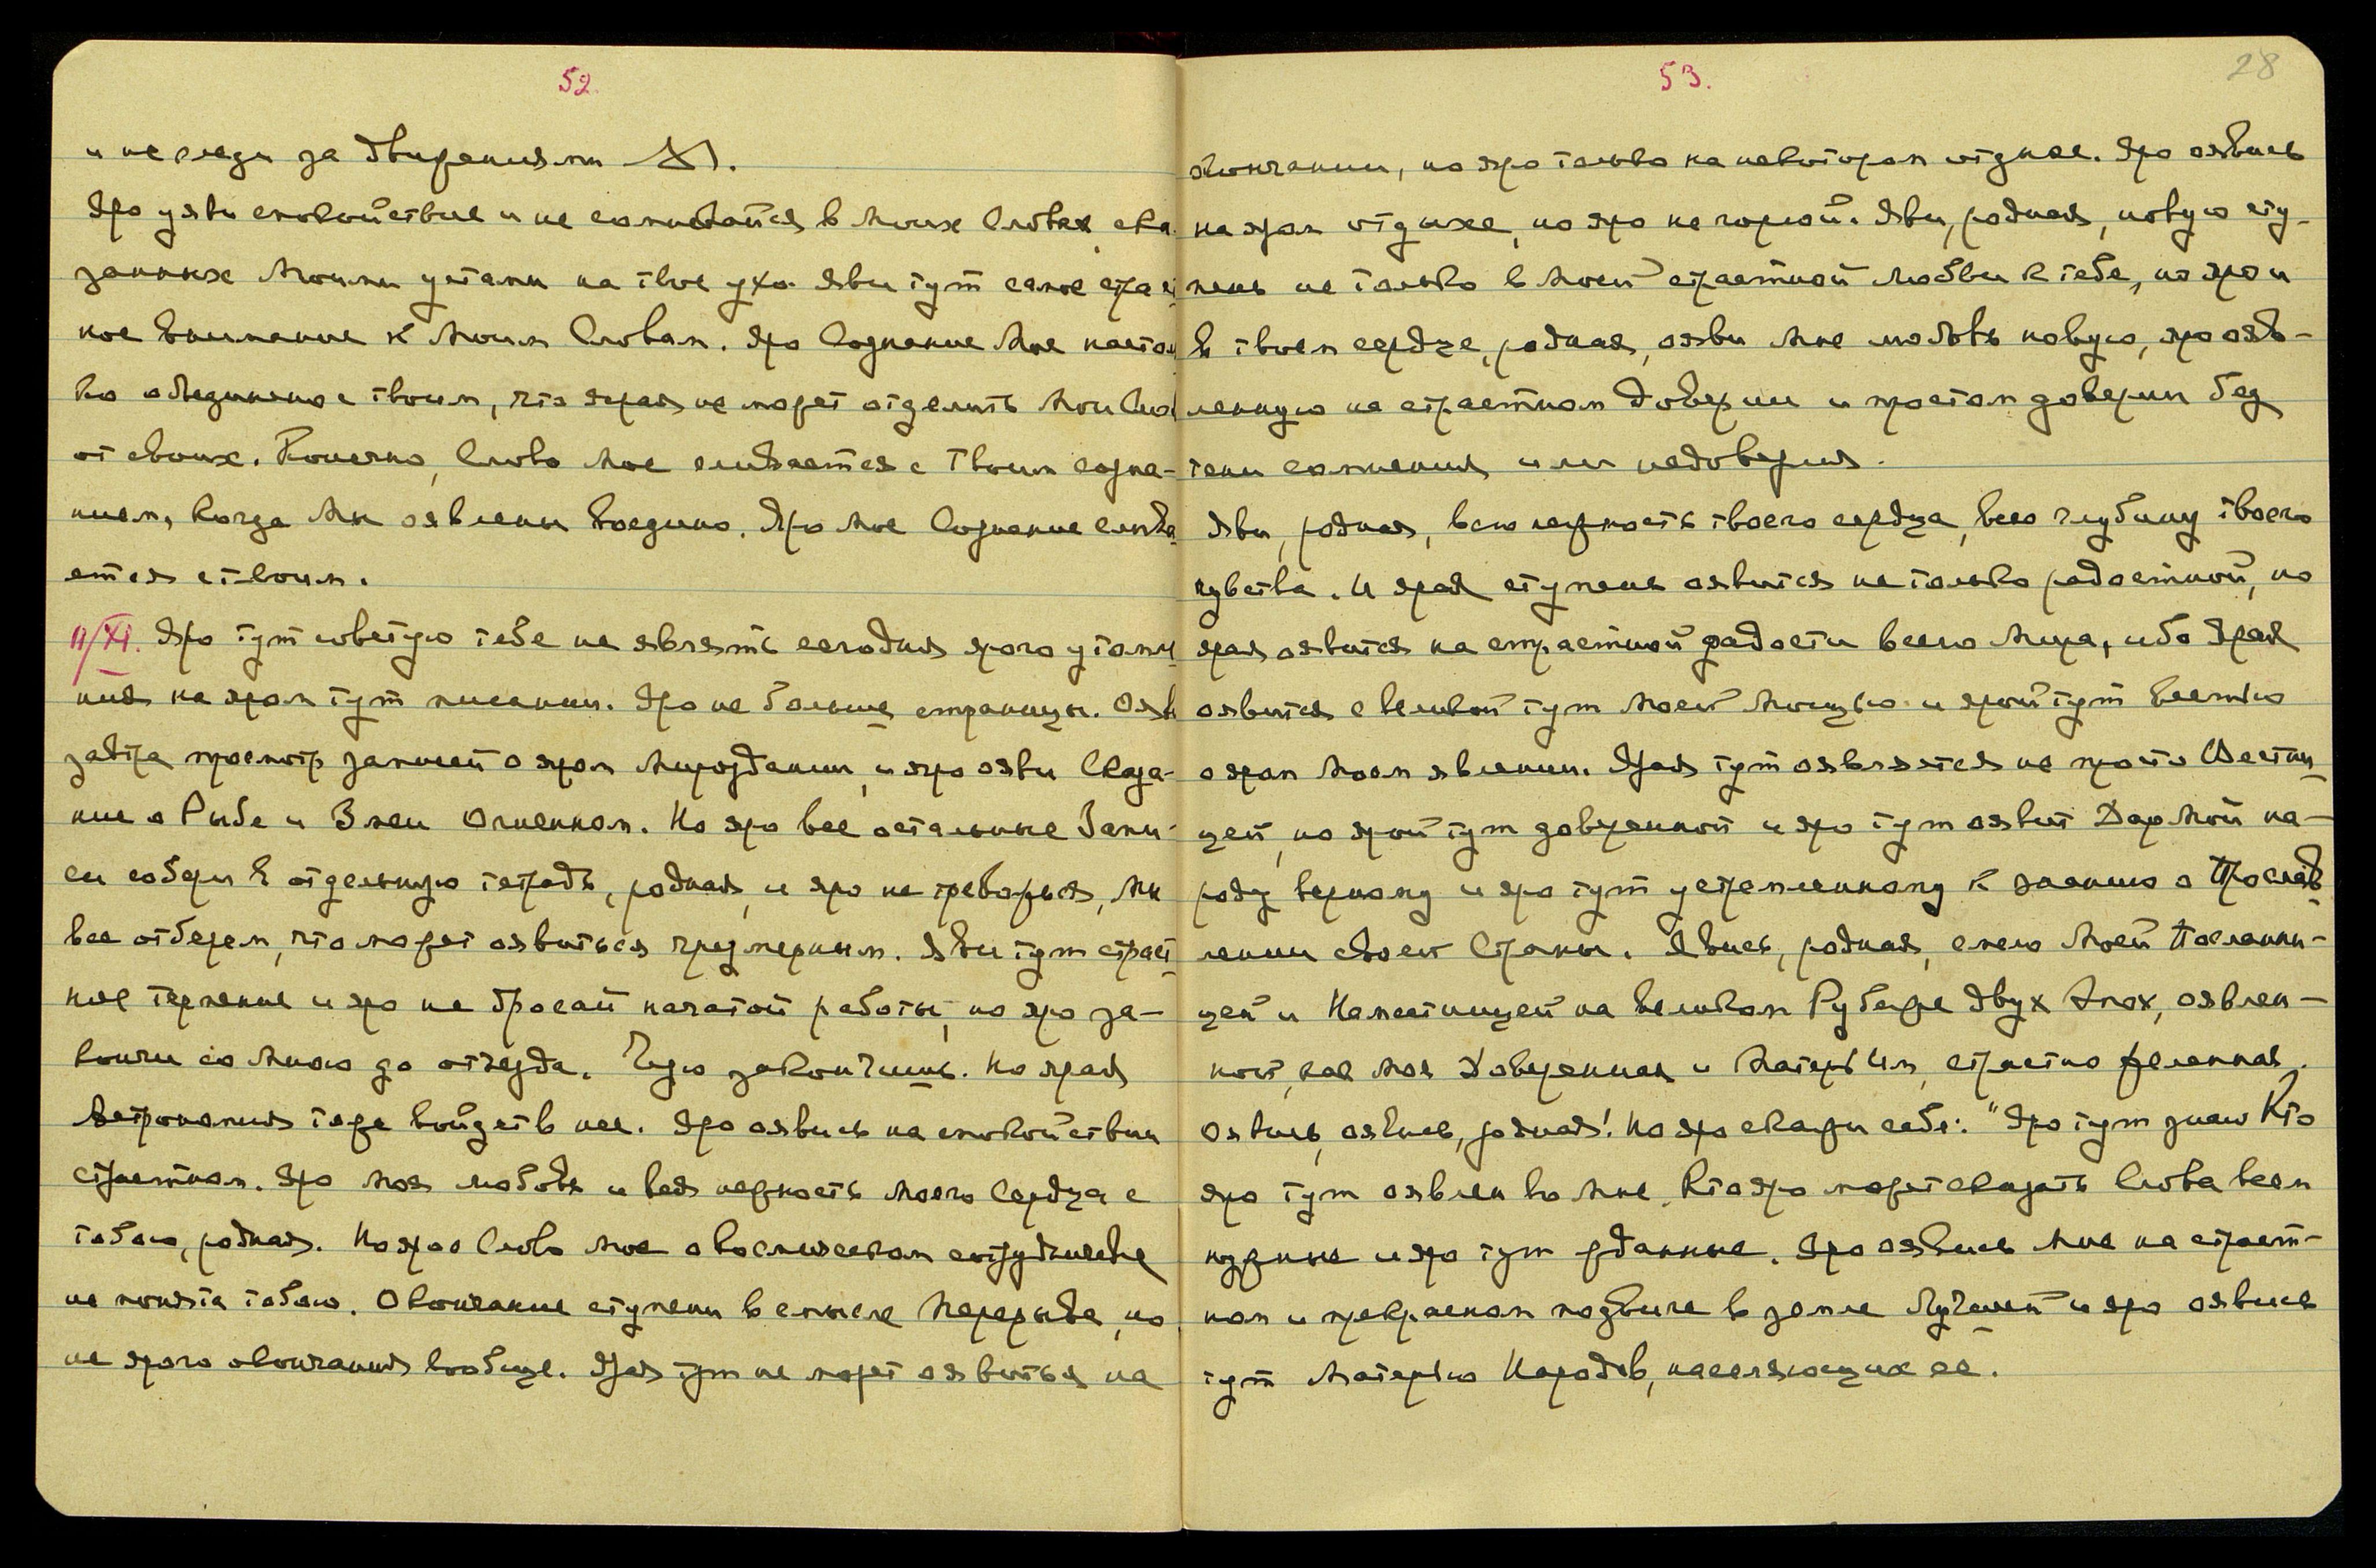 52
и не следи за движениями
Яро уяви спокойствие и не сомневайся в Моих Словах, ска-
занных Моими устами на твое ухо. Яви тут самое страст
ное внимание к Моим Словам. Яро Сознание Мое настоль
ко объединено с твоим, что ярая не может отделить Мои Слова
от своих. Конечно, Слово Мое сливается с Твоим созна-
нием, когда Мы оявлены воедино. Яро Мое Сознание слива
ется с твоим.
11/XI. Яро тут советую тебе не являть сегодня ярого утомле
ния на яром тут писании. Яро не больше страницы. Ояви
завтра просмотр записей о яром Мироздании, и яро ояви Сказа-
ние о Рыбе и Змеи Огненном. Но яро все остальные Запи-
си собери в отдельную тетрадь, родная, и яро не тревожься, Мы
все отберем, что может оявиться чрезмерным. Яви тут страст
ное терпение и яро не бросай начатой работы, но яро за-
кончи со Мною до отъезда. Чудо закончишь. Но ярая
Астрономия тоже войдет в нее. Яро оявись на спокойствии
страстном. Яро Моя любовь и вся нежность Моего Сердца с
тобою, родная. Но ярое Слово Мое о космическом сотрудничестве
не понято тобою. Окончание ступени в смысле Перерыва, но
не ярого окончания вообще. Ярая тут не может оявиться на
53.
28
окончании, но яро только на некотором отдыхе. Яро оявись
на яром отдыхе, но яро не горюй. Яви, родная, новую сту-
пень не только в Моей страстной Любви к тебе, но яро и
в твоем сердце, родная, ояви Мне любовь новую, яро ояв-
ленную на страстном Доверии и простом доверии без
тени сомнения или недоверия.
Яви, родная, всю нежность твоего сердца, всю глубину твоего
чувства. И ярая ступень оявится не только радостной, но
ярая оявится на страстной радости всего Мира, ибо Ярая
оявится с великой тут Моей Мощью и ярой тут Вестью
о яром Моем явлении. Ярая тут оявляется не просто Вестни
цей, но ярой тут доверенной и яро тут оявит Дар Мой на-
роду верному и яро тут устремленному к знанию о Прослав
лении своей Страны. Явись, родная, смело Моей Посланни-
цей и Наместницей на великом Рубеже Двух Эпох, оявлен-
ной, как Моя Доверенная и Матерь Им, страстно желанная.
Оявись, оявись, родная! Но яро скажи себе: "Яро тут знаю Кто
яро тут оявлен ко Мне, Кто яро может сказать Слова всем
нужные и яро тут жданные. Яро оявись Мне на страст-
ном и прекрасном подвиге в земле Лучшей и яро оявись
тут Матерью Народов, населяющих ее.